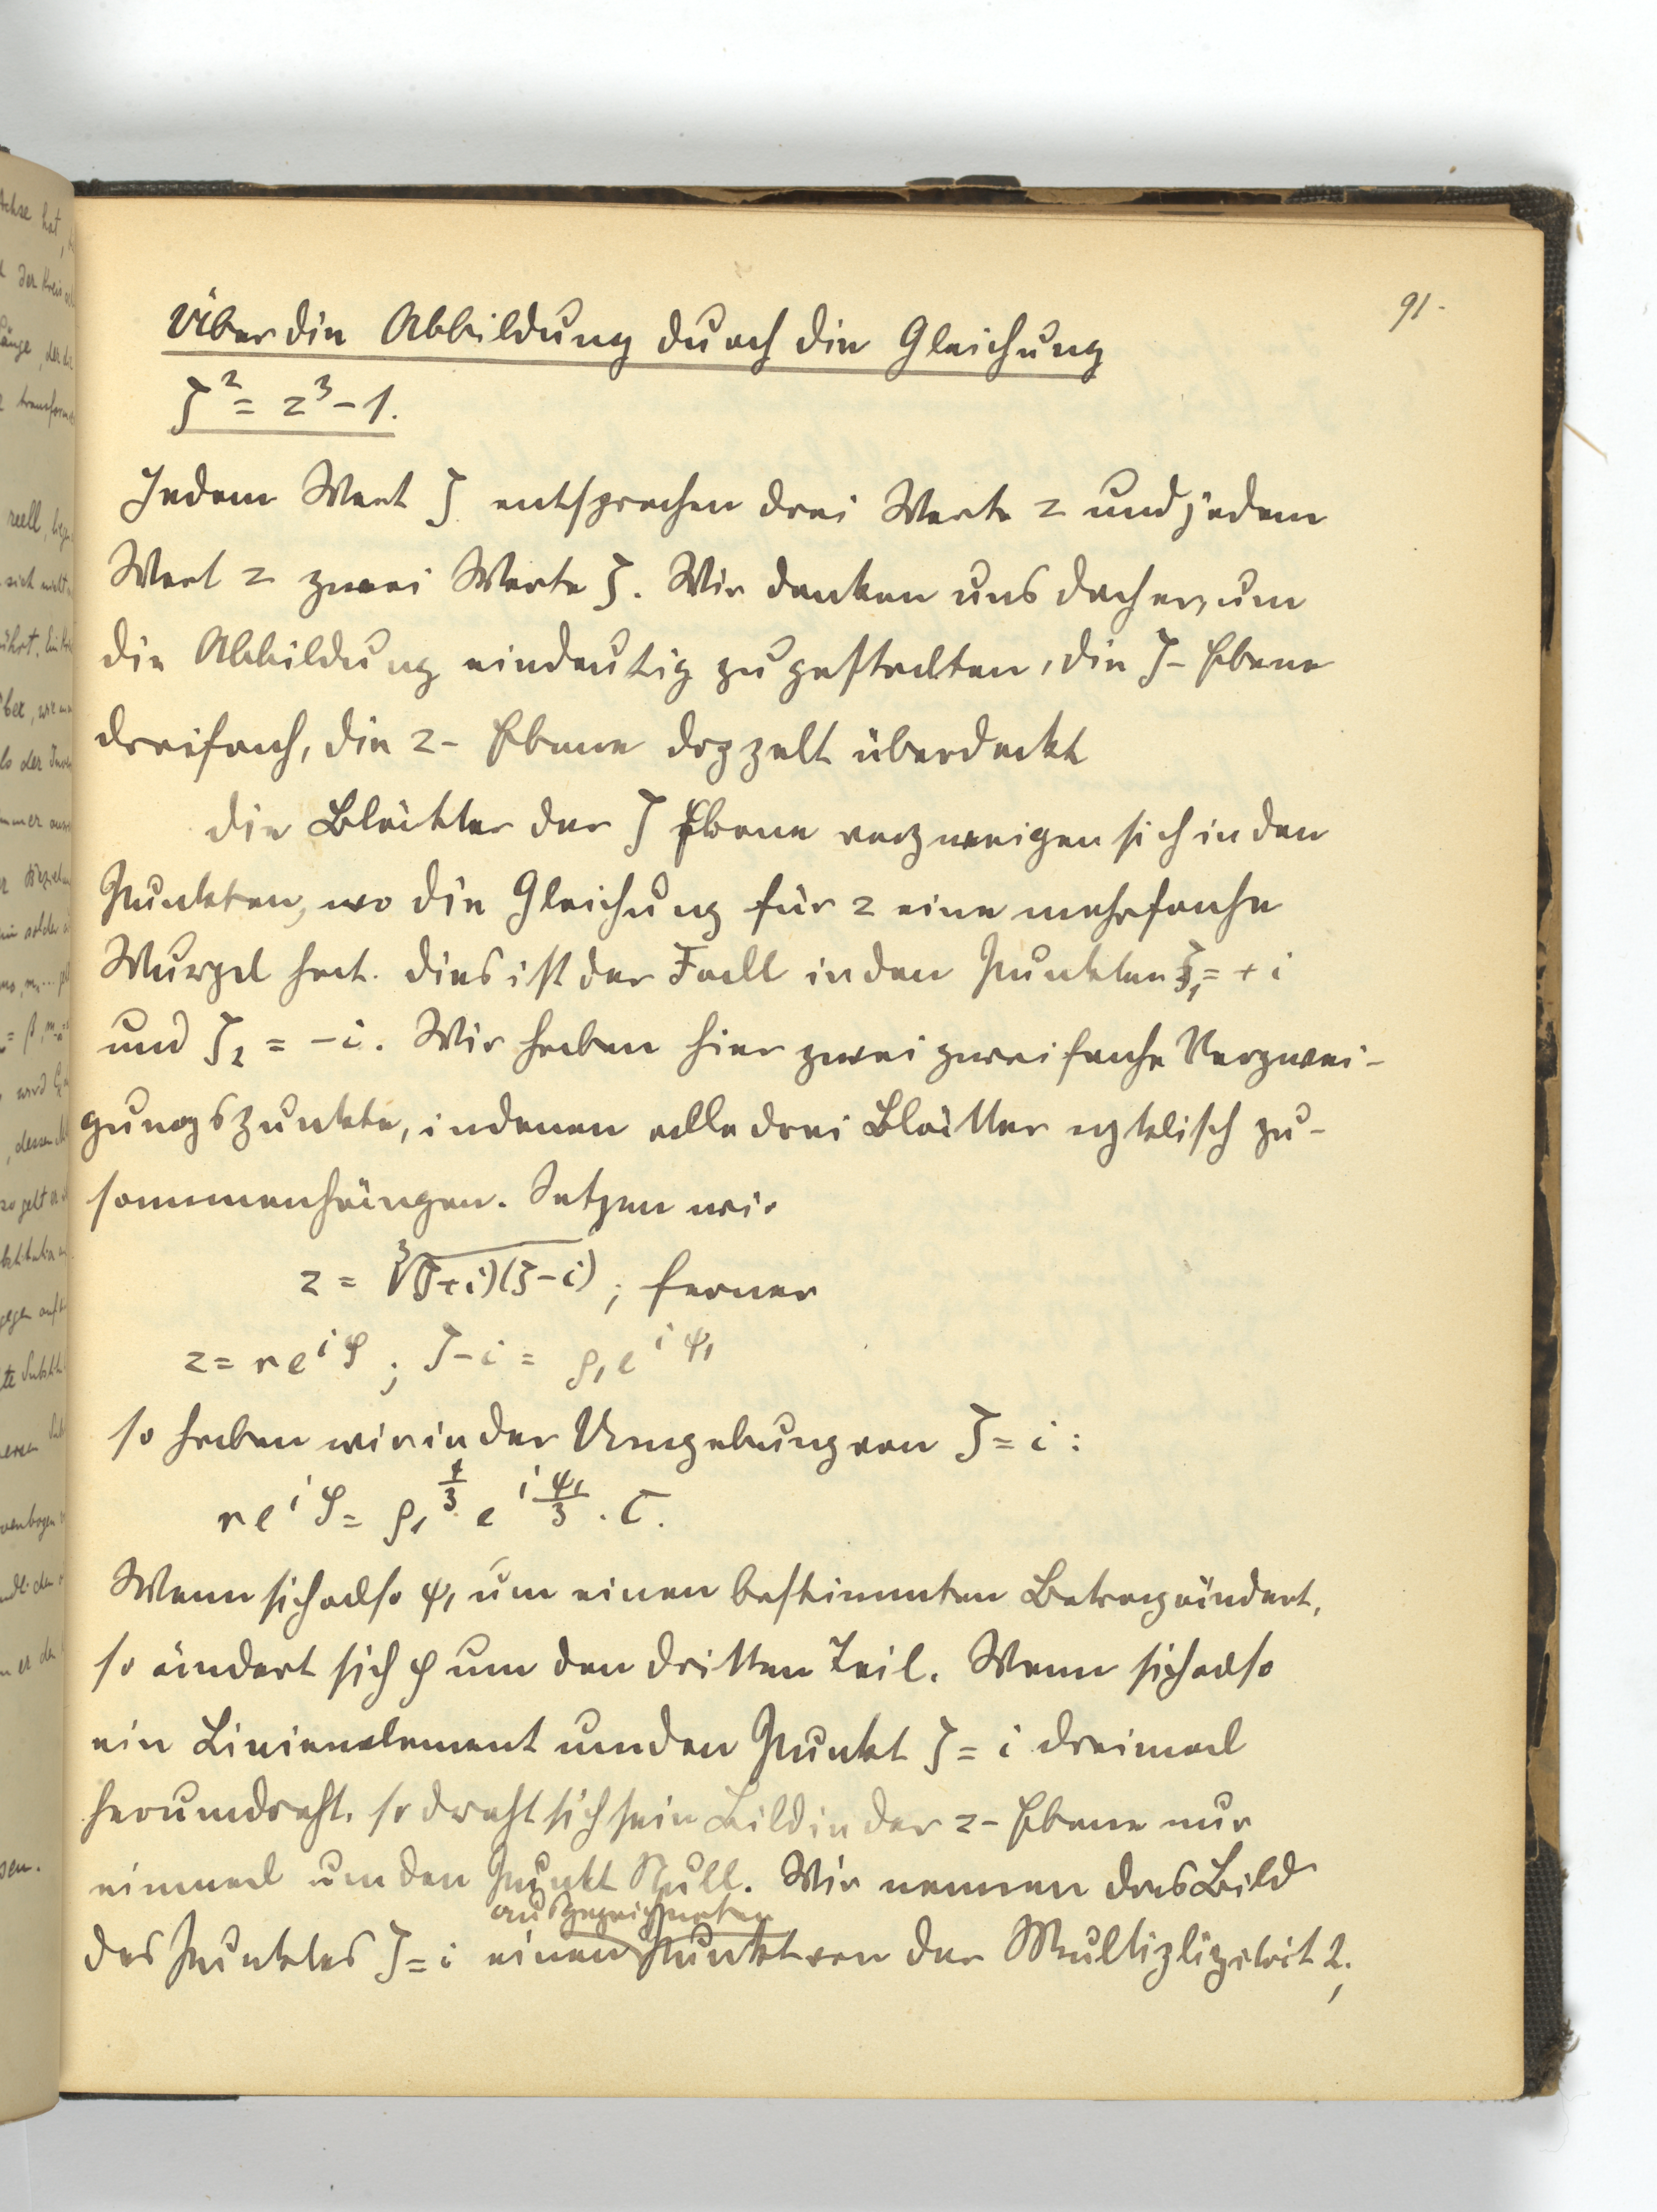 91.
Über die Abbildung durch die Gleichung
ζ² = z³ − 1.
Jedem Wert ζ entsprechen drei Werte z und jedem
Wert z zwei Werte ζ. Wir denken uns daher, um
die Abbildung eindeutig zu gestalten, die ζ- Ebene
dreifach, die z- Ebene doppelt überdeckt
Die Blätter der ζ Ebene verzweigen sich in den
Punkten, wo die Gleichung für z eine mehrfache
Wurzel hat. Dies ist der Fall in den Punkten ζ₁ = + i
und ζ₂ = −i. Wir haben hier zwei zweifache Verzwei-
gungspunkte, in denen alle drei Blätter zyklisch zu-
sammenhängen. Setzen wir
z = ∛(ζ+i)(ζ−i) ; ferner
z = r e^{iφ} ; ζ−i = ρ₁ e^{iψ₁}
so haben wir in der Umgebung von ζ = i :
r e^{iφ} = ρ₁^{1/3} e^{iψ₁/3} . C.
Wenn sich also ψ₁ um einen bestimmten Betrag ändert,
so ändert sich φ um den dritten Teil. Wenn sich also
ein Linienelement um den Punkt ζ = i dreimal
herumdreht, so dreht sich sein Bild in der z- Ebene nur
einmal um den Punkt Null. Wir nennen das Bild
ausgezeichneten
des Punktes ζ = i einen Punkt von der Multiplizität 2;